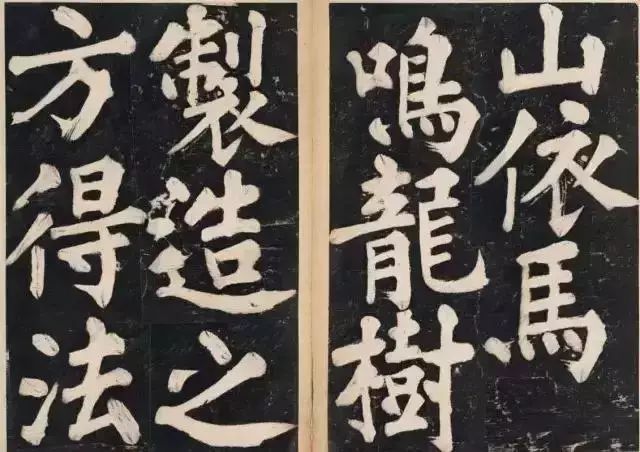 山依馬
鳴龍樹
製造之
方得法